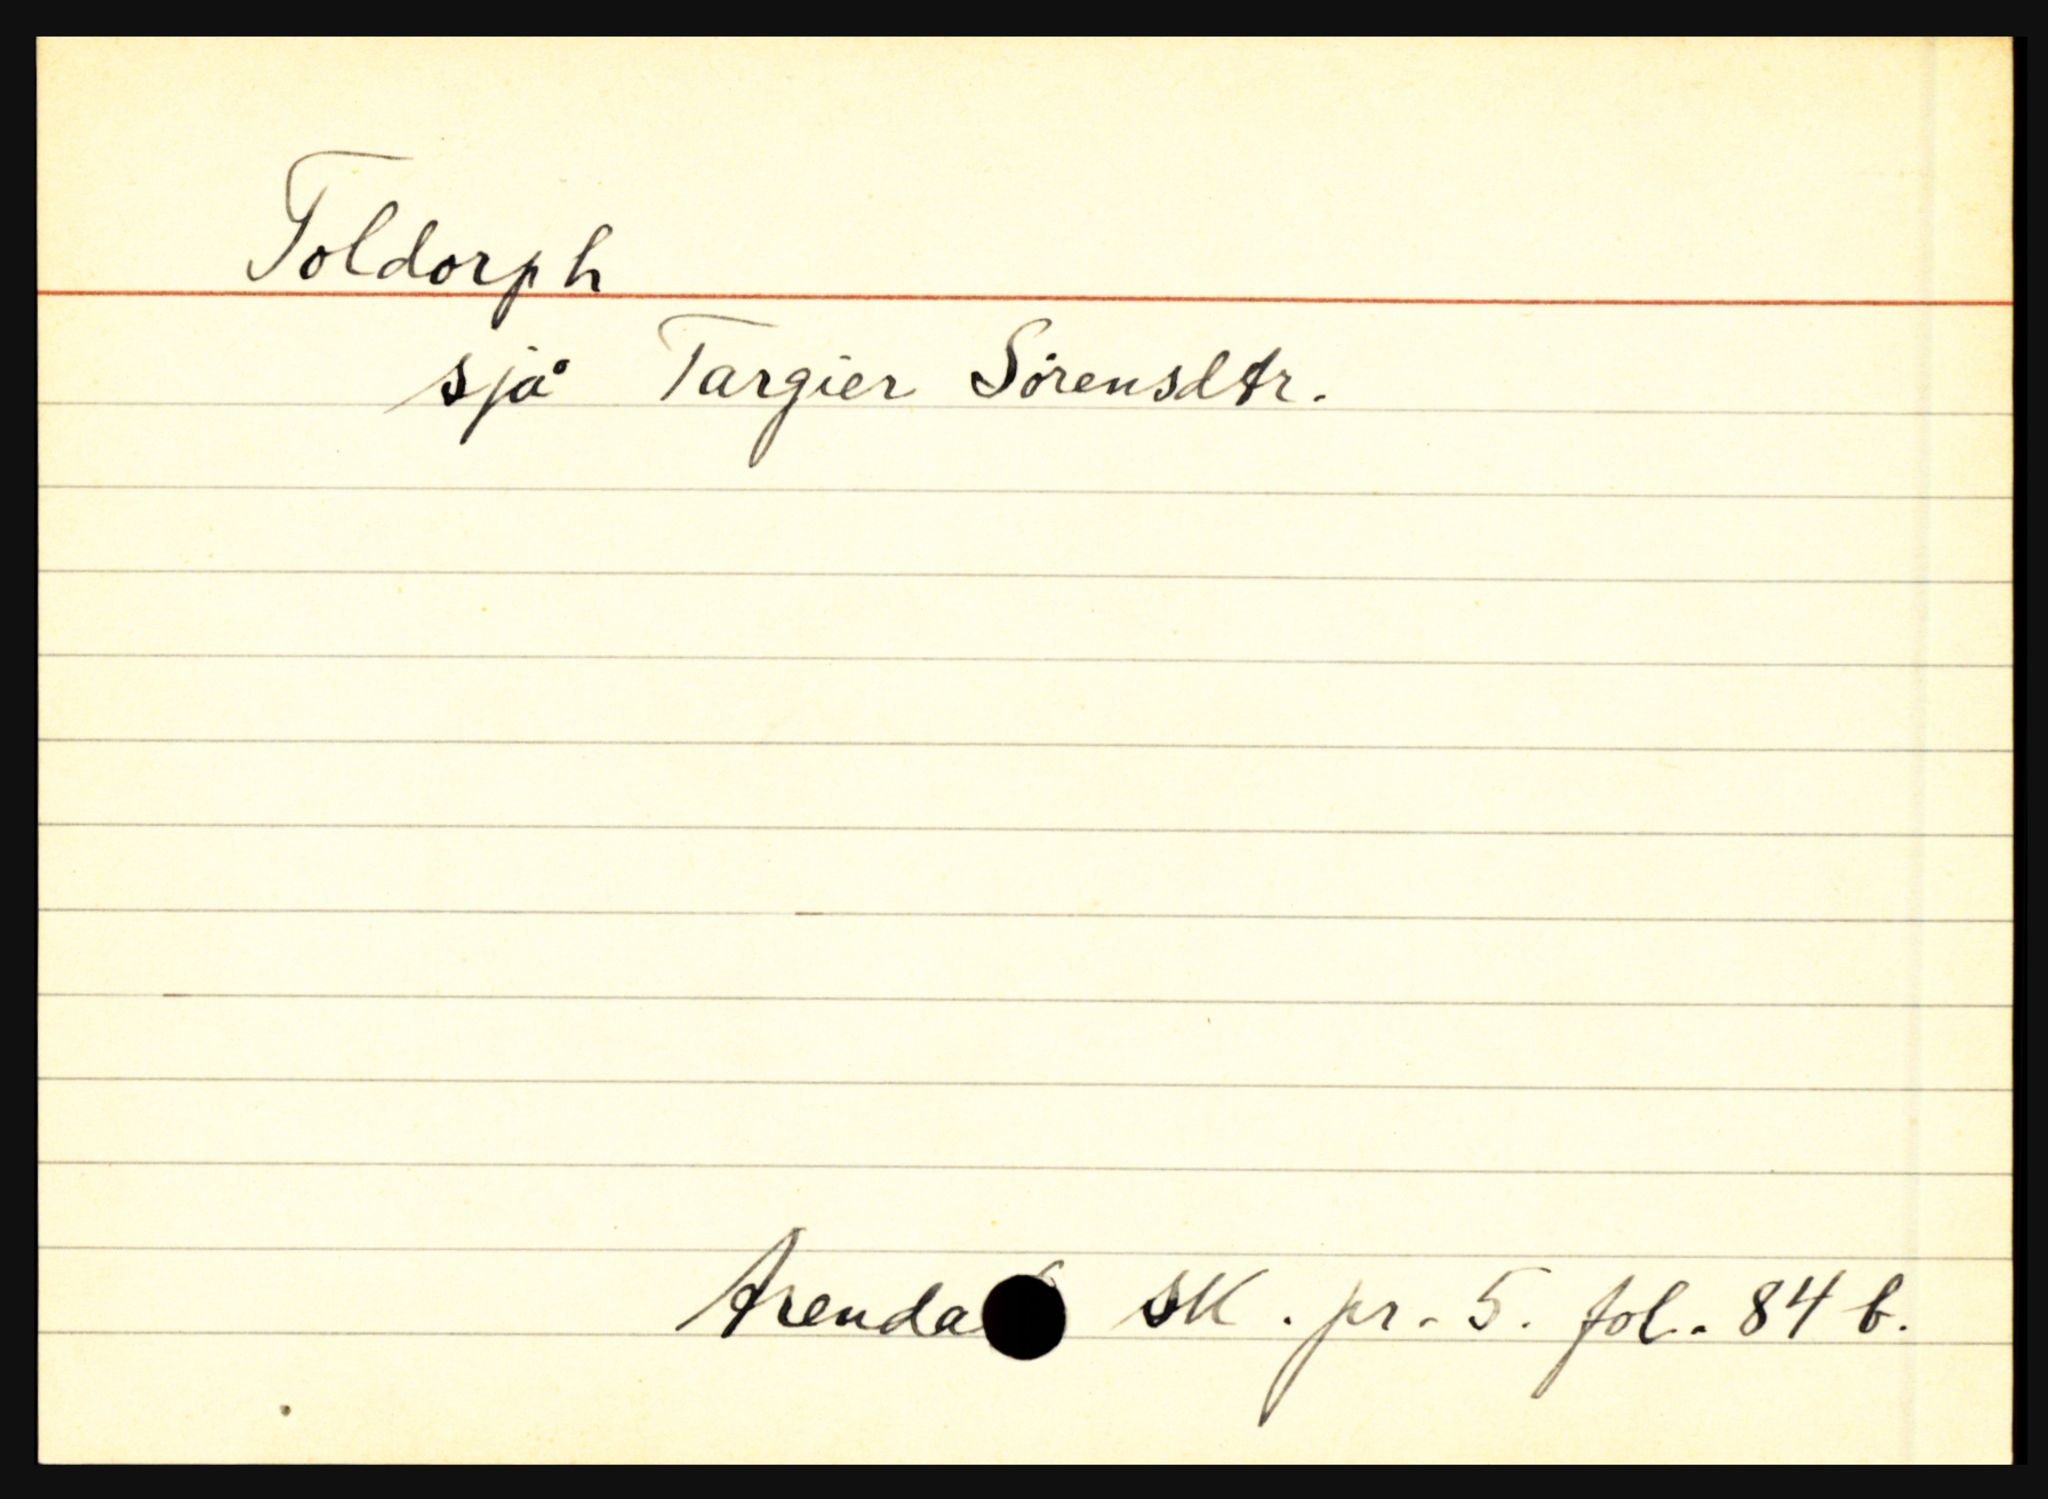 Toldorph
sjå Targier Sörensdtr.
Arendal sk. pr. 5. fol. 84 b.